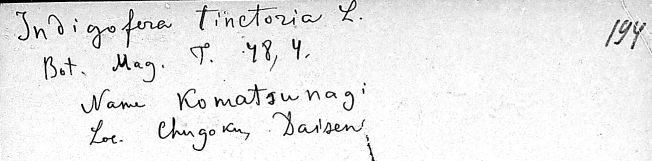 Indigofera tinctoria L.
194
Bot. Mag. T. 48, 4.
Name Komatsunagi
Loc. Chugoku, Daisen